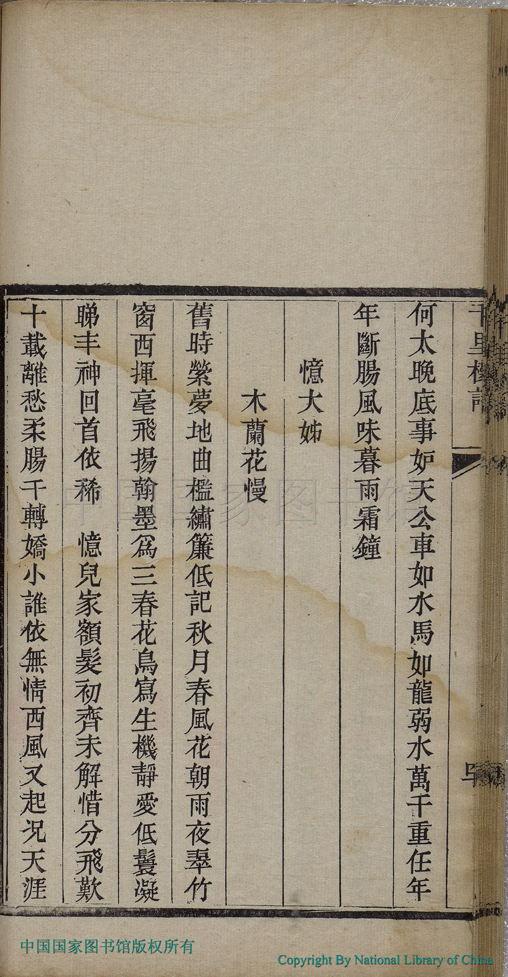 何太晚底事妒天公車如水馬如龍弱水萬千重任年
年斷腸風味暮雨霜鐘
憶大姊
木蘭花慢
舊時縈夢地曲檻繡簾低記秋月春風花朝雨夜翠竹
窗西揮毫飛揚翰墨爲三春花鳥寫生機靜愛低鬟凝
睇丰神回首依稀　憶兒家額髮初齊未解惜分飛歎
十載離愁柔腸千轉嬌小誰依無情西風又起况天涯
中国国家图书馆
中国国家图书馆版权所有
Copyright By National Library of China